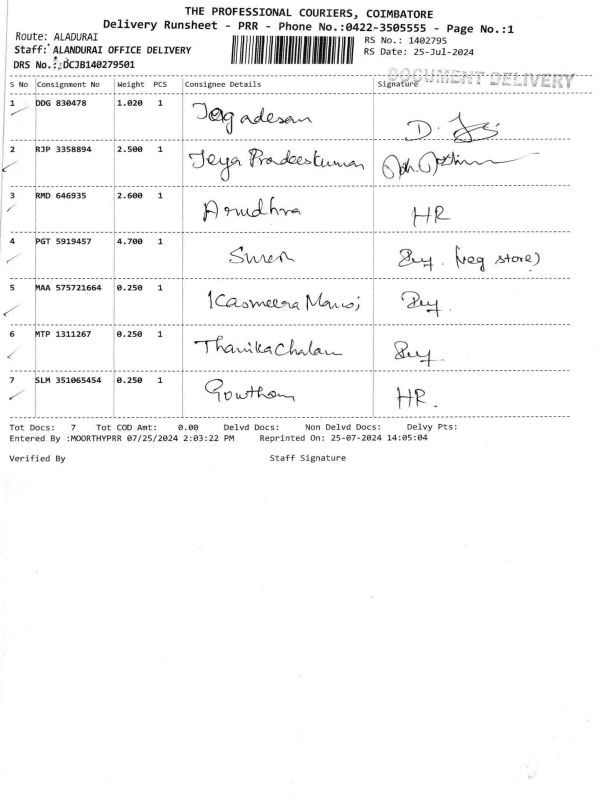 THE PROFESSIONAL COURIERS, COIMBATORE
Delivery Runsheet - PRR - Phone No.:0422-3505555 - Page No.:1
Route: ALADURAI
RS No.: 1402795
Staff: ALANDURAI OFFICE DELIVERY
RS Date: 25-Jul-2024
DRS No.: DCJB140279501
DOCUMENT DELIVERY
S No Consignment No Weight PCS Consignee Details Signature
1 DDG 830478 1.020 1 Jegadesan D.
2 RJP 3358894 2.500 1 Jeya Pradeeskumar
3 RMD 646935 2.600 1 Arudhra HR
4 PGT 5919457 4.700 1 Suren (veg store)
5 MAA 575721664 0.250 1 Kasmeera Manoj
6 MTP 1311267 0.250 1 Thanikachalam
7 SLM 351065454 0.250 1 Gowtham HR.
Tot Docs: 7 Tot COD Amt: 0.00 Delvd Docs: Non Delvd Docs: Delvy Pts:
Entered By :MOORTHYPRR 07/25/2024 2:03:22 PM Reprinted On: 25-07-2024 14:05:04
Verified By Staff Signature